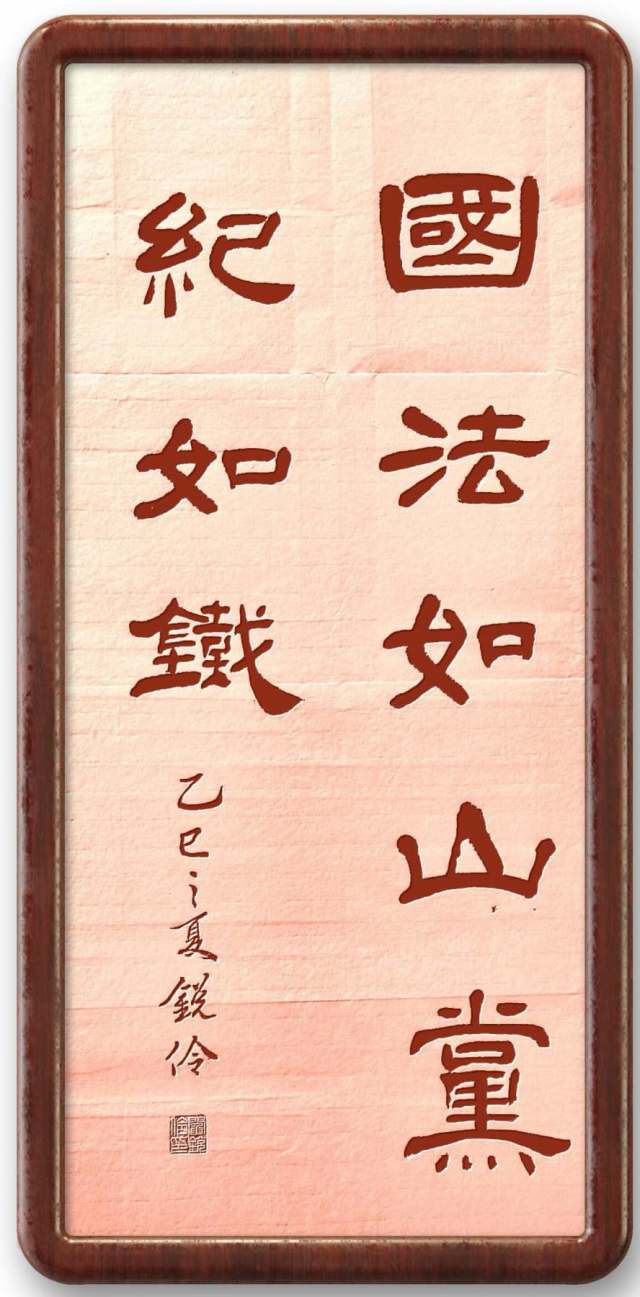 國法如山黨
紀如鐵
乙巳之夏銳伶